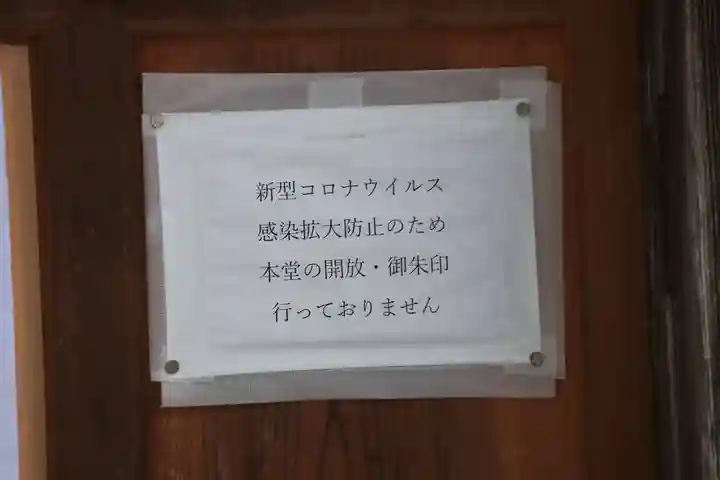 新型コロナウイルス
感染拡大防止のため
本堂の開放・御朱印
行っておりません